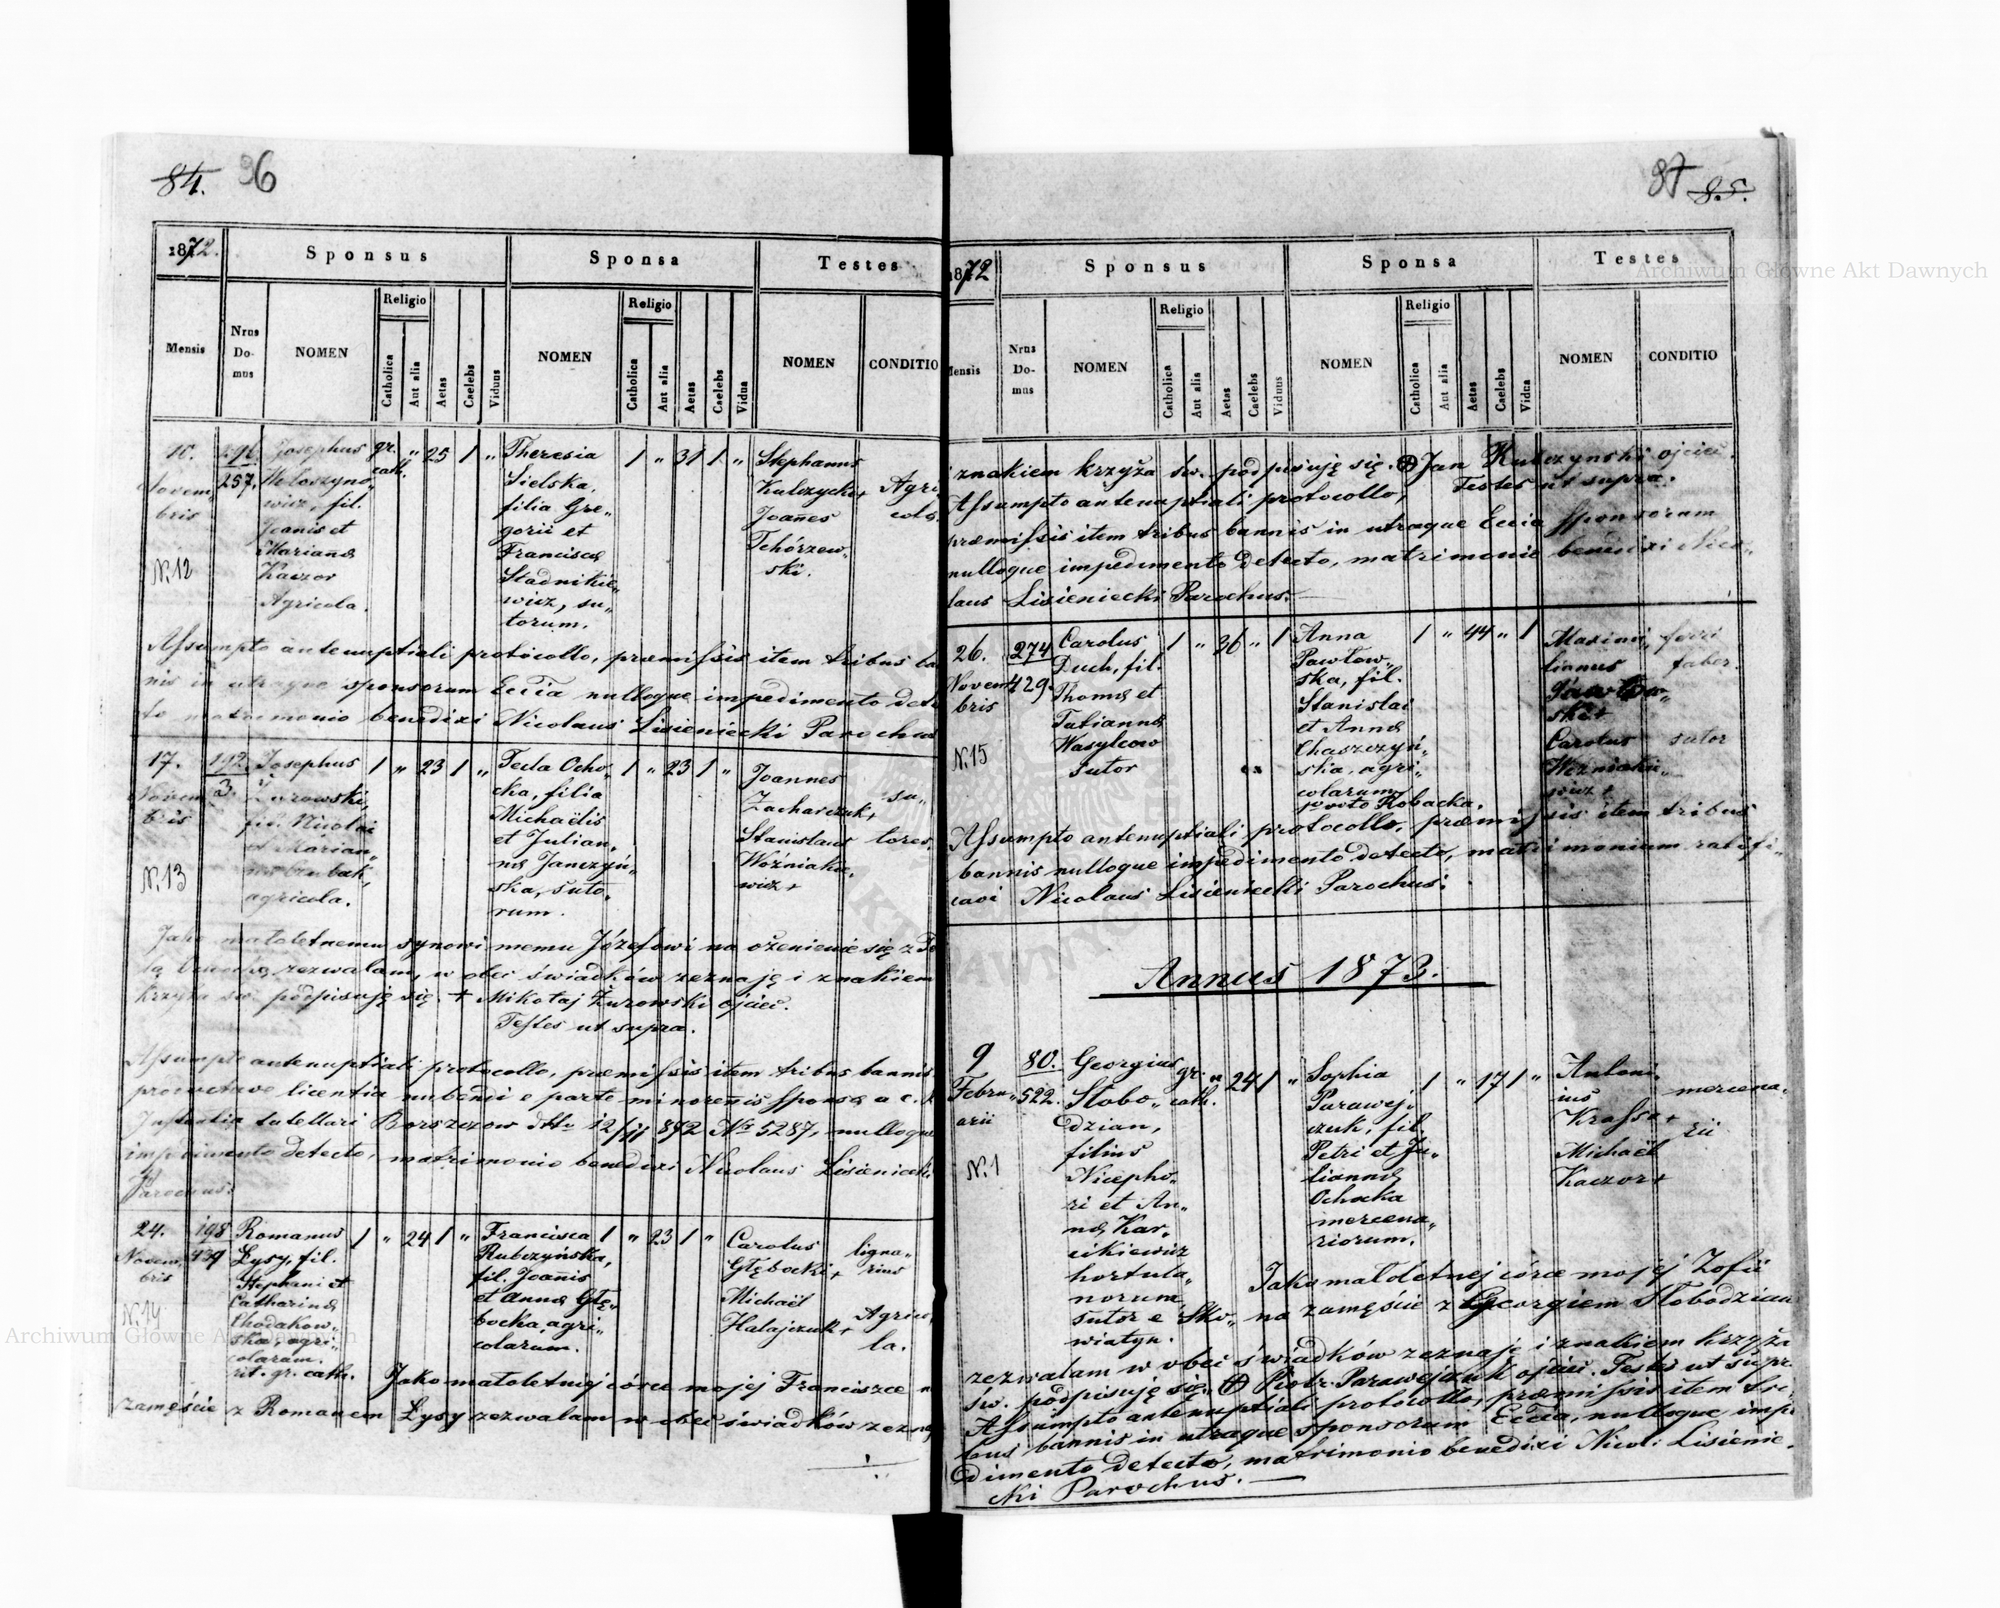 84. 86
1872.
Sponsus
Sponsa
Testes
Mensis
Nrus Domus
NOMEN
Religio
Catholica
Aut alia
Aetas
Caelebs
Viduus
NOMEN
Religio
Catholica
Aut alia
Aetas
Caelebs
Vidua
NOMEN
CONDITIO
10. Novembris
N. 12
257.
Josephus
Woloszyno„
wicz, fil.
Joanis et
Marianæ
Kaczor
Agricola.
gr. cath. „ 25 1 „
Theresia
Sielska,
filia Gre„
gorii et
Franciscæ
Stadnikie„
wicz, su„
torum.
1 „ 31 1 „
Stephanus
Kulczycki +
Joañes
Tchórzew„
ski.
Agri
colæ
Assumpto antenuptiali protocollo, præmissis item tribus ban
nis in utraque sponsorum Eccia nulloque impedimento dete
to matrimonio benedixi Nicolaus Lisieniecki Parochus
17. Novembris
N. 13
192. 3.
Josephus
Żurowski,
fil. Nicolai
et Marian„
agricola.
1 „ 23 1 „
Tecla Ocho„
cka, filia
Michaëlis
et Julian„
næ Janczyń„
ska, suto„
rum.
1 „ 23 1 „
Joannes
Zacharczuk +
Stanislaus
Woźniakie„
wicz +
su„
tores.
Jako małoletnemu synowi memu Józefowi na ożenienie się z Te
zezwalam, w obec świadków zeznaję i znakiem
krzyża św. podpisuję się. + Mikołaj Żurowski ojciec.
Testes ut supra.
Assumpto antenuptiali protocollo, præmissis item tribus bannis
licentia nubendi e parte minorenis sponsæ a c. k.
Borszczow dtto 12/11 872 Nr 5287, nulloque
impedimento detecto, matrimonio benedixi Nicolaus Lisieniecki
Parochus.
24. Novembris
N. 14
198 439
Romanus
Łysy, fil.
Stephani et
Catharinæ
Chodakow„
ska, agri„
colarum.
rit. gr. cath.
1 „ 24 1 „
Francisca
Rubczyńska,
fil. Joañis
et Annæ Głę„
bocka, agri„
colarum.
1 „ 23 1 „
Carolus
Głębocki +
Michaël
Hałajczuk +
ligna„
rius
Agrico„
la.
Jako małoletniej córce mojej Franciszce n
zamęście z Romanem Łysy zezwalam w obec świadków zezna
87 85.
1872
Sponsus
Sponsa
Testes
Mensis
Nrus Domus
NOMEN
Religio
Catholica
Aut alia
Aetas
Caelebs
Viduus
NOMEN
Religio
Catholica
Aut alia
Aetas
Caelebs
Vidua
NOMEN
CONDITIO
i znakiem krzyża św. podpisuję się. + Jan Rubczyński ojciec.
Testes ut supra.
Assumpto antenuptiali protocollo,
præmissis item tribus bannis in utraque Eccia sponsorum
nulloque impedimento detecto, matrimonio benedixi Nico„
laus Lisieniecki Parochus.
26. Novembris
N. 15
274 429.
Carolus
Duch, fil.
Thomæ et
Tatiannæ
Wasylcow
sutor
1 „ 36 „ 1
Anna
Pawłow„
ska, fil.
Stanislai
et Annæ
Chaszczyń„
ska, agri„
colarum
Robacka.
1 „ 44 „ 1
Maximi„
lianus
ski +
Carolus
Woźniakie„
wicz +
ferri
faber.
sutor
Assumpto antenuptiali protocollo, præmissis item tribus
bannis nulloque impedimento detecto, matrimonium ratifi„
cavi Nicolaus Lisieniecki Parochus.
Annus 1873.
9 Februarii
N. 1
80. 522.
Georgius
Słobo„
dzian,
filius
Nicepho„
ri et An„
næ Kar„
cikiewicz
hortula„
norum
sutor e Sko„
wiatyn.
gr. cath. „ 24 1 „
Sophia
Parawej„
czuk, fil.
Petri et Ju„
liannæ
Ochocka
mercena„
riorum.
1 „ 17 1 „
Antoni„
ius
Krassa +
Michaël
Kaczor +
mercena„
rii
Jako małoletniej córce mojej Zofii
na zamęście z Georgiem Słobodzian
zezwalam w obec świadków zeznaję i znakiem krzyża
św. podpisuję się. + Piotr Parawejczuk ojciec. Testes ut supra
Assumpto antenuptiali protocollo, præmissis item tri„
bus bannis in utraque sponsorum Eccia, nulloque impe
dimento detecto, matrimonio benedixi Nicol: Lisienie„
cki Parochus.
Archiwum Główne Akt Dawnych
Archiwum Główne Akt Dawnych